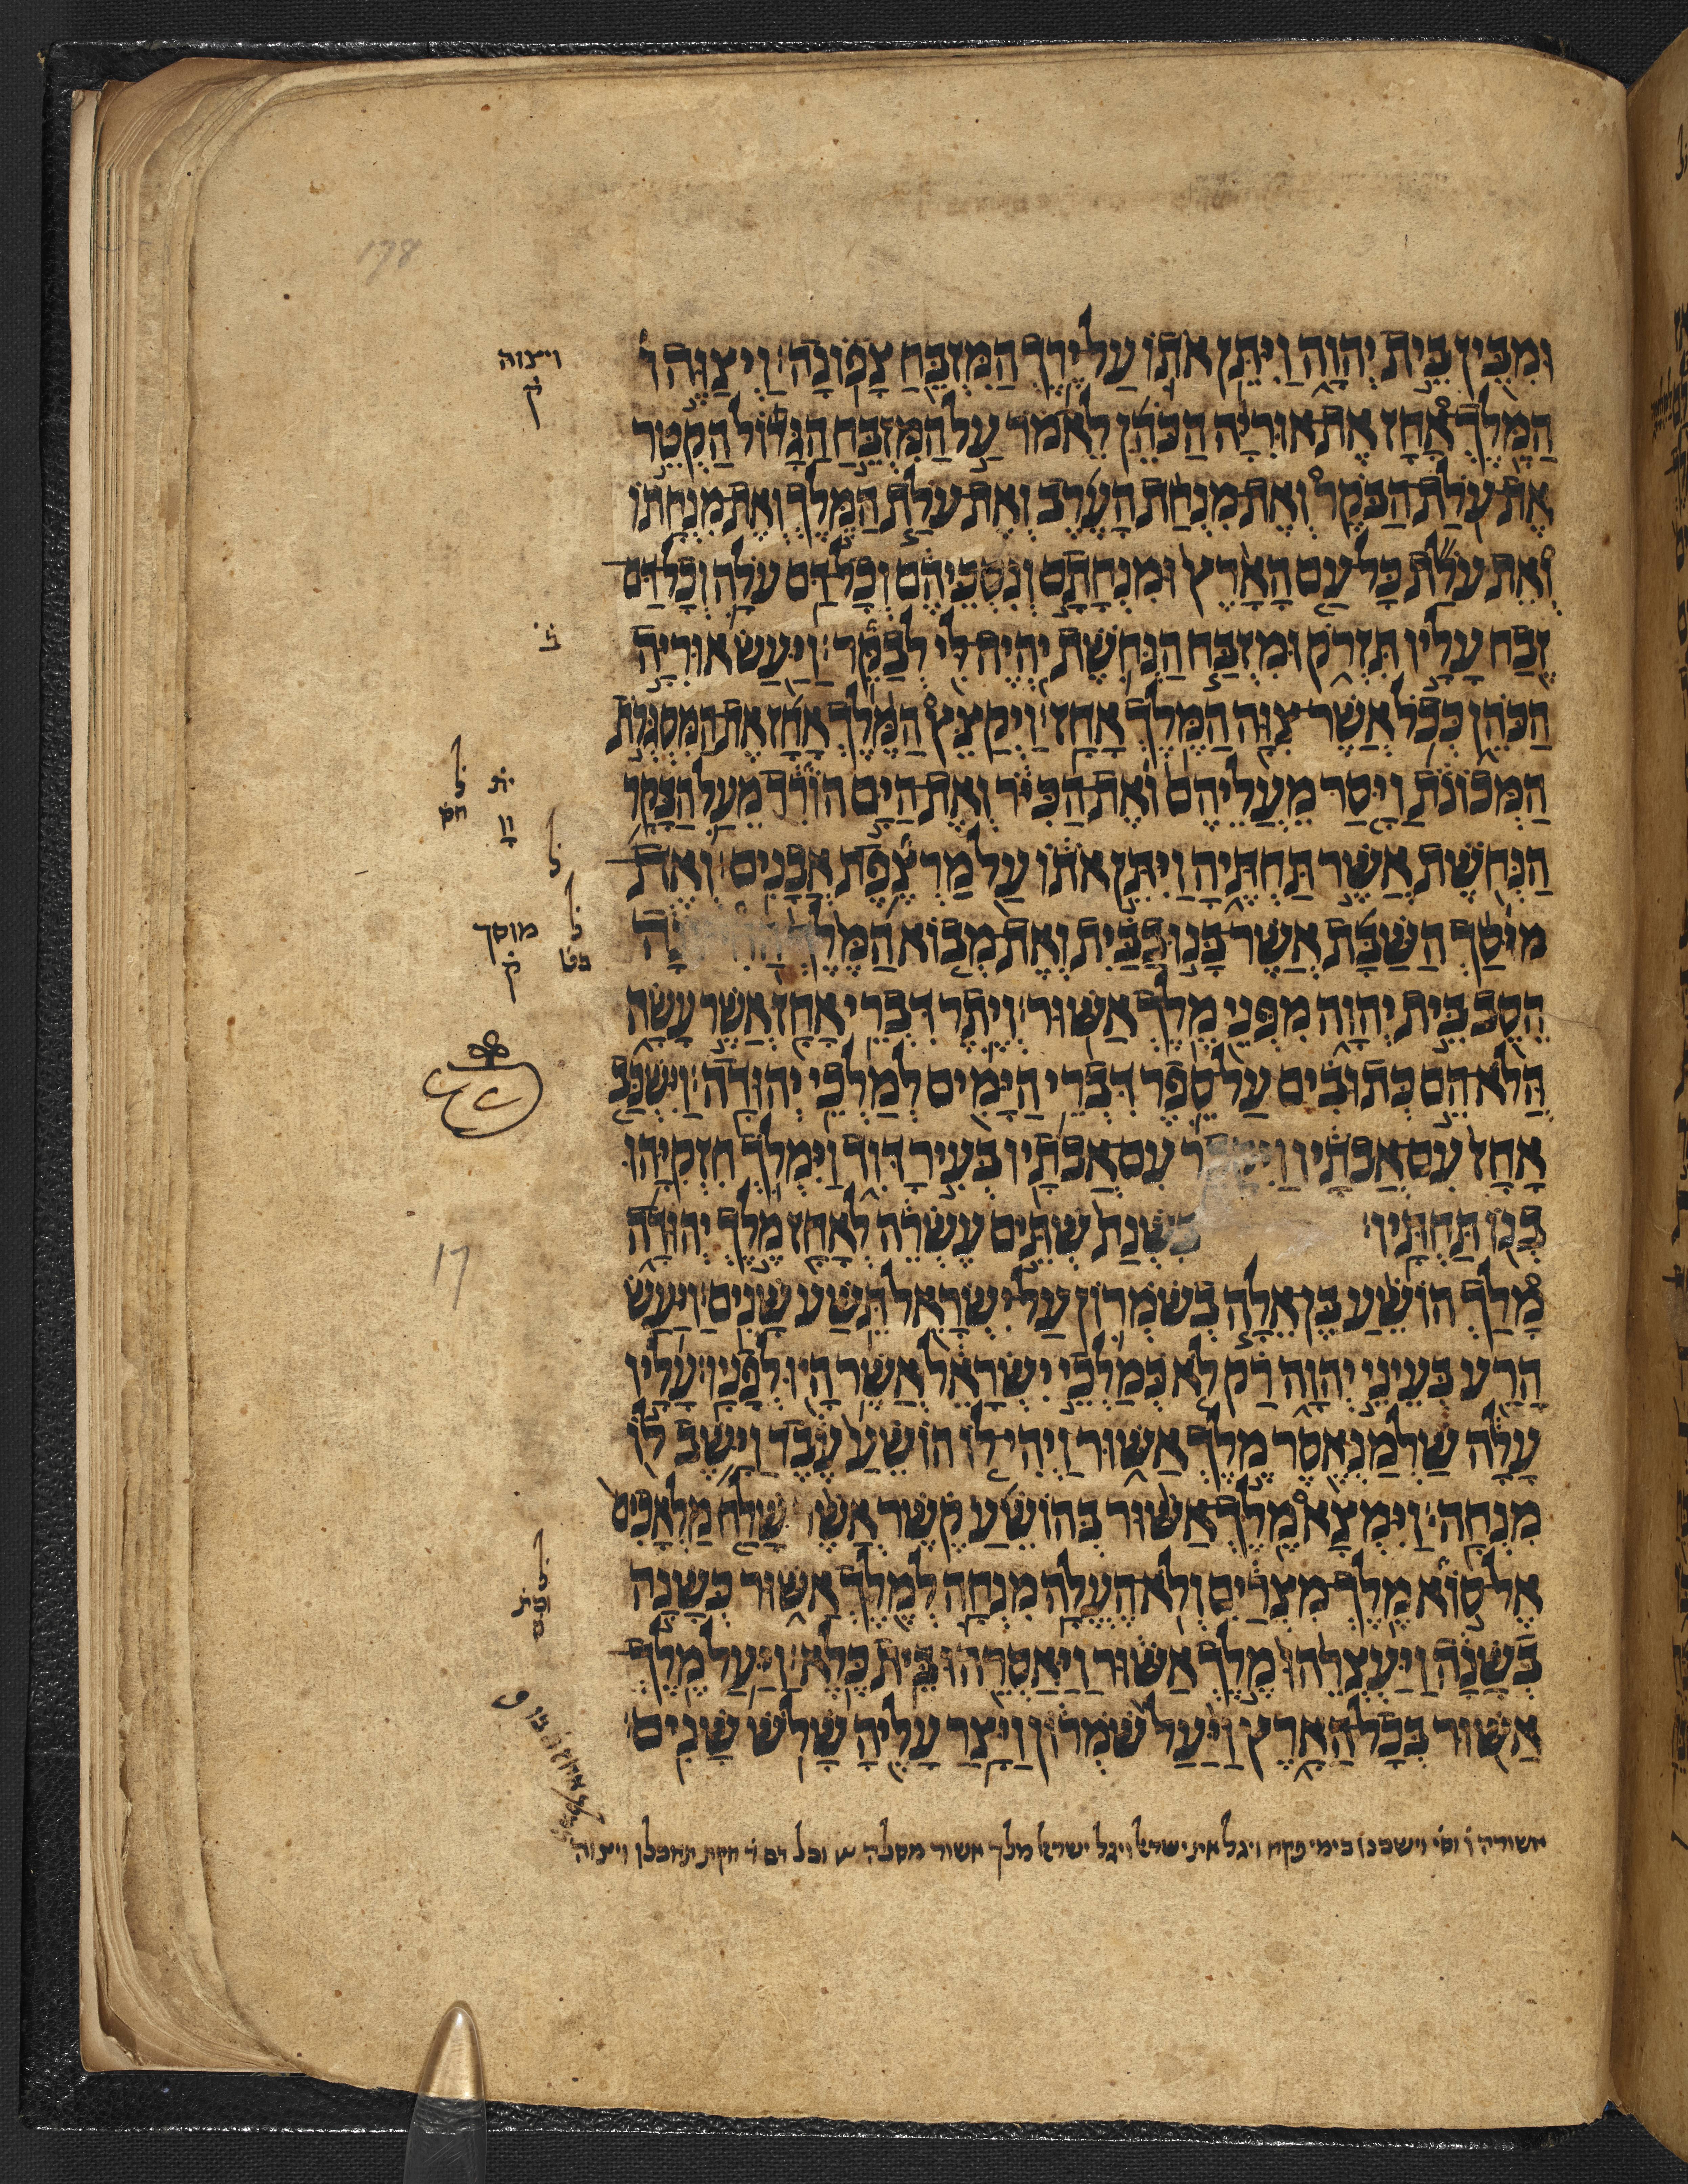 ומבין בית יהוה ויתן אתו על ירך המזבח צפונה ויצוהו
המלך אחז את אוריה הכהן לאמר על המזבח הגדול הקטר
את עלת הבקר ואת מנחת הערב ואת עלת המלך ואת מנחתו
ואת עלת כל עם הארץ ומנחתם ונסכיהם וכל דם עלה וכל דם
זבח עליו תזרק ומזבח הנחשת יהיה לי לבקר ויעש אוריה
הכהן ככל אשר צוה המלך אחז ויקצץ המלך אחז את המסגרות
המכונת ויסר מעליהם ואת הכיר ואת הים הורד מעל הבקר
הנחשת אשר תחתיה ויתן אתו על מרצפת אבנים ואת
מיסך השבת אשר בנו בבית ואת מבוא המלך
הסב בית יהוה מפני מלך אשור ויתר דברי אחז אשר עשה
הלא הם כתובים על ספר דברי הימים למלכי יהודה וישכב
אחז עם אבתיו ויקבר עם אבתיו בעיר דוד וימלך חזקיהו
בנו תחתיו בשנת שתים עשרה לאחז מלך יהודה
מלך הושע בן אלה בשמרון על ישראל תשע שנים ויעש
הרע בעיני יהוה רק לא כמלכי ישראל אשר היו לפניו עליו
עלה שלמנאסר מלך אשור ויהי לו הושע עבד וישב לו
מנחה וימצא מלך אשור בהושע קשר אשר שלח מלאכים
אל סוא מלך מצרים ולא העלה מנחה למלך אשור כשנה
בשנה ויעצרהו מלך אשור ויאסרהו בית כלא ויעל מלך
אשור בכל הארץ ויעל שמרון ויצר עליה שלש שנים
ויצוה
ק
ל
ית
מוסך
ק
ל
178
17
אשורה וישבנו בימי פקח ויגל את ישראל ויגל ישראל מלך אשור וכל דם חקת ויצוה